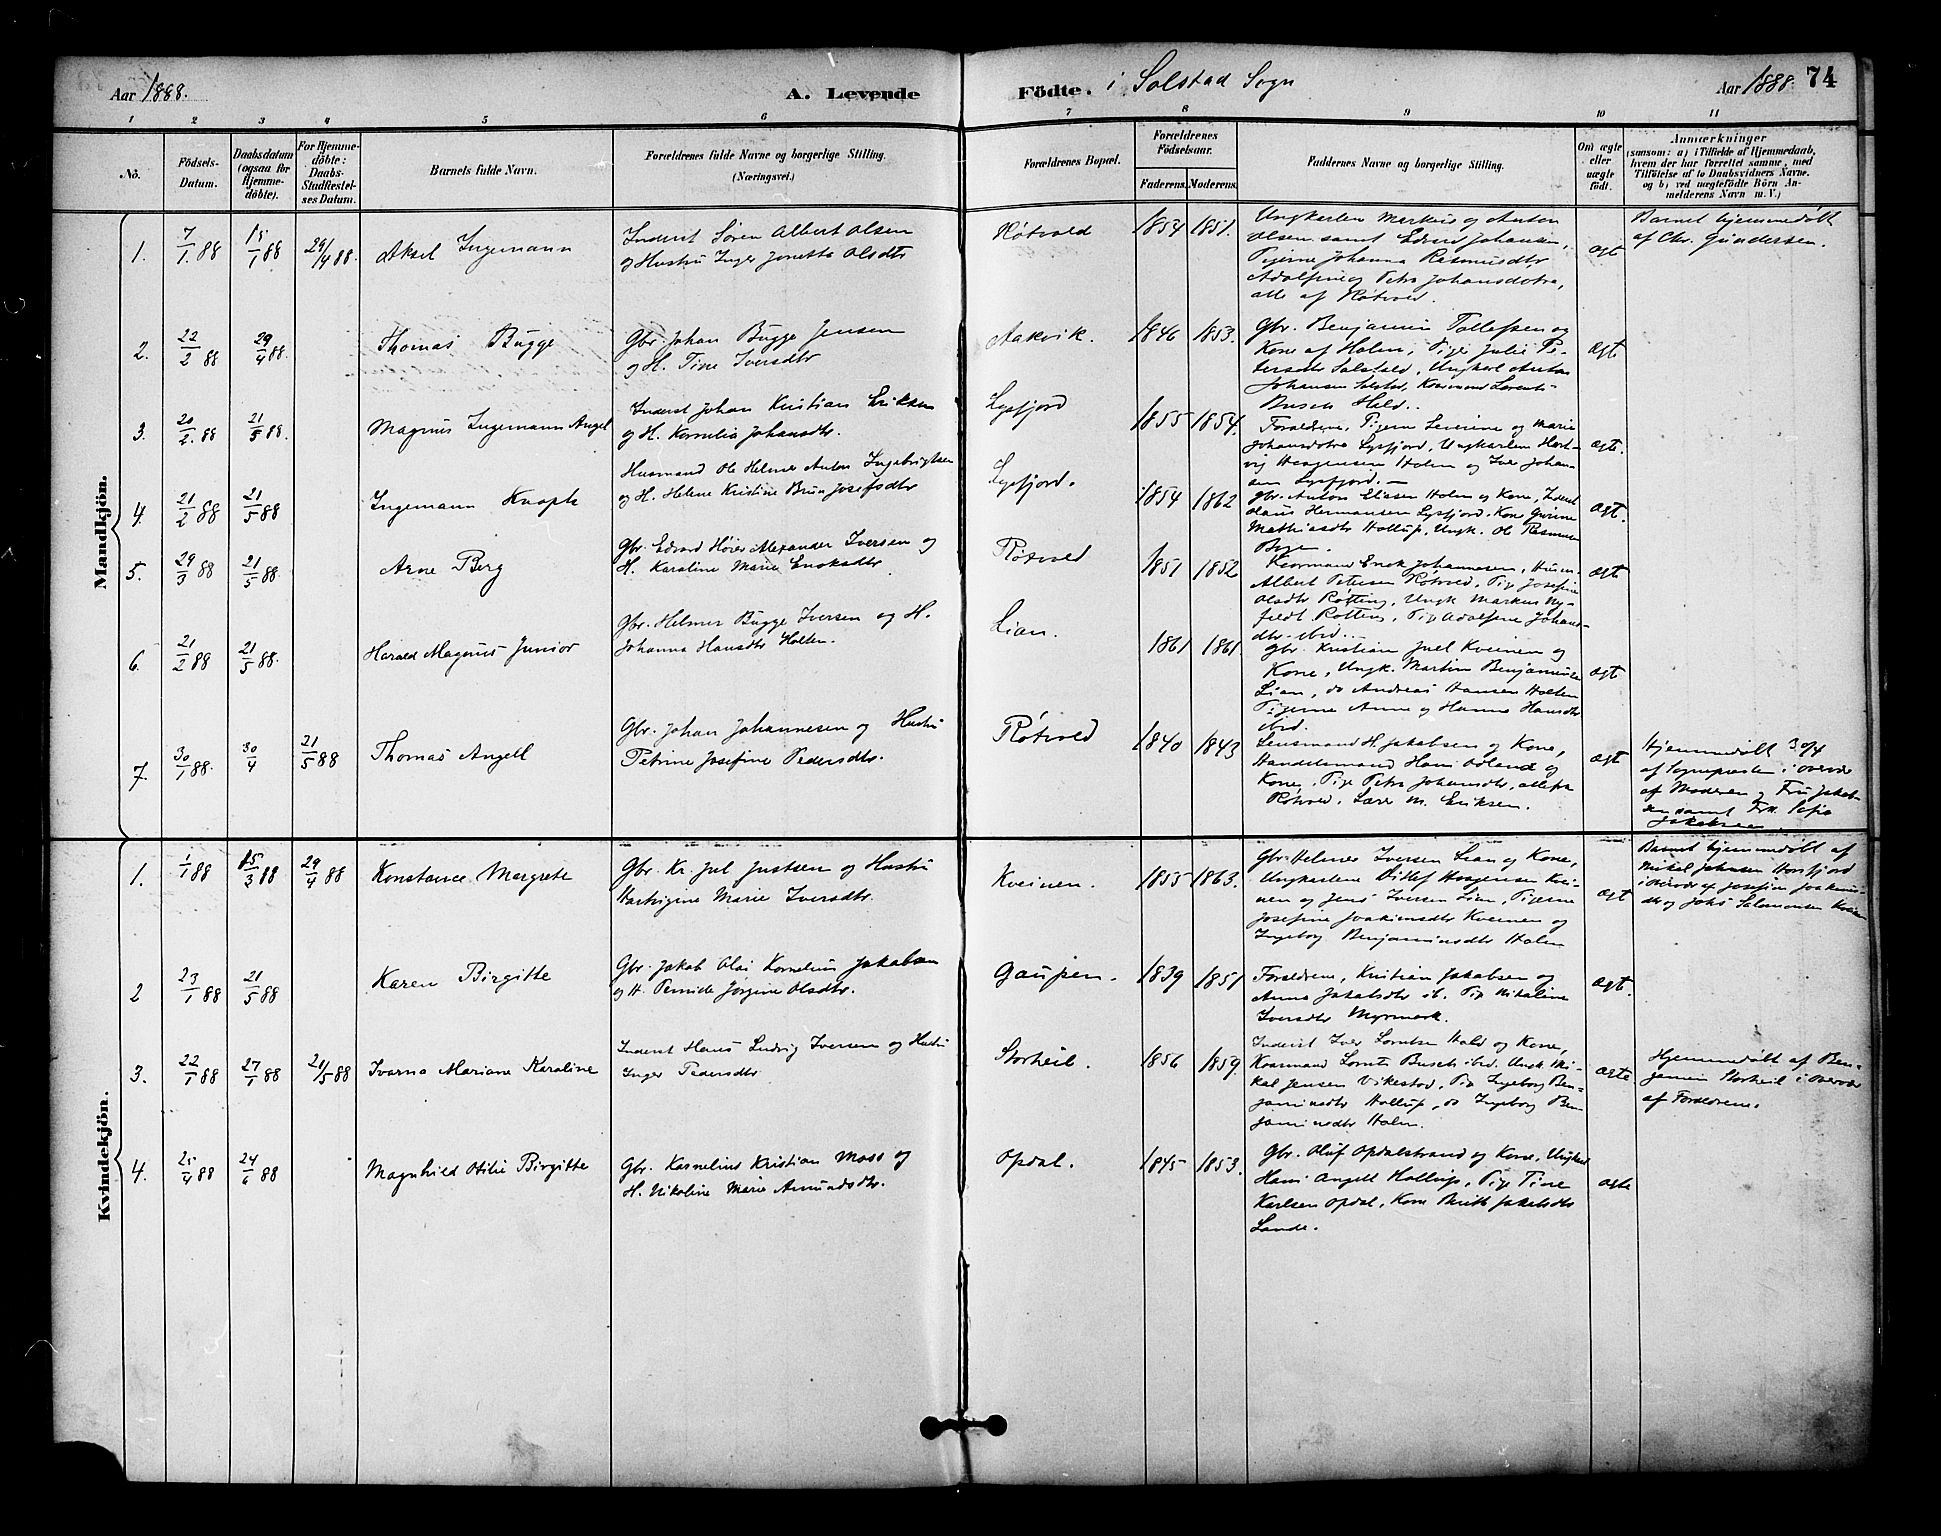 Aar 1888.
A. Levende
Födte. i Solstad Sogn
Aar 1888. 74
1 2 3 4 5 6 7 8 9 10 11
No.
Födsels-Datum.
Daabsdatum (ogsaa for Hjemmedöbte).
For Hjemmedöbte: Daabs-Stadfæstelses Datum.
Barnets fulde Navn.
Forældrenes fulde Navne og borgerlige Stilling. (Næringsvei.)
Forældrenes Bopæl.
Forældrenes Födselsaar.
Faderens. Moderens.
Faddernes Navne og borgerlige Stilling.
Om ægte eller uægte födt.
Anmærkninger
(saasom: a) i Tilfælde af Hjemmedaab, hvem der har forrettet samme, med Tilföielse af to Daabsvidners Navne. og b) ved uægtefödte Börn Anmelderens Navn m. V.)
Mandkjön.
1. 7/1.88 15/1 88 29/4 88. Aksel Ingemann
Inderst Søren Albert Olsen
og Hustru Inger Jonetta Olsdtr
Røtvold 1854 1851.
Ungkarlen Markus og Anton
Olsen samt Edvard Johansen,
Pigerne Johanna Rasmusdtr
Adolfine og Petra Johansdøtre,
alle af Røtvold.
ægt
Barnet hjemmedøbt
af Chr. Gundersen.
2. 22/2 88 29/4 88. Thomas Bugge
Gbr. Johan Bugge Jensen
og H. Tine Iversdtr
Aakvik. 1846 1853.
Gbr. Benjamin Tollefsen og
Kone af Holm, Pige Julie Pe-
tersdtr Solstad, Ungkarl Anton
Johansen Solstad, Kaarmand Lorents
Busch Hald..
ægt
3. 20/2. 88 21/5 88. Magnus Ingemann Angel
Inderst Johan Kristian Eriksen
og H. Kornelia Johansdtr.
Lysfjord 1855 1854.
Forældrene, Pigerne Levine og Marie
Johansdøtre Lysfjord, Ungkarlen Hart-
vig Haagensen Holm og Iver Johan-
sen Lysfjord. —
ægt.
4. 21/2 88 21/5 88 Ingemann Knoph
Husmand Ole Helmer Anton Ingebrigtsen
og H. Helene Kristine Brun Josefsdtr
Lysfjord. 1854 1862
Gbr. Anton Eliasen Holm og Kone, Inderst
Olaus Hermansen Lysfjord, Kone
Mathiasdtr Hollup, Ungk. Ole Rasmus
ægt.
5. 29/1 88 21/5 88. Arne Berg
Gbr. Edvard Høier Alexander Iversen og
H. Karoline Marie Enoksdtr
Røtvold 1851 1852
Kaarmand Enok Johannesen, Husm.
Albert Petersen Røtvold, Pige Josefine
Olsdtr Røtting, Ungk Markus Ny-
feldt Røtting, Pige Adolfine Johans-
dtr ibid. —
ægt
6. 21/2 88 21/5 88. Harald Magnus Junior
Gbr. Helmer Bugge Iversen og H.
Johanna Hansdtr Holten.
Lian. 1861 1861.
Gbr. Kristian Juel Kveinen og
Kone, Ungk. Martin Benjaminsen
Lian, do Andreas Hansen Holten
Pigerne Anne og Hanna Hansdtr
ibid.
ægt
7. 30/1 88. 30/4 21/5 88 Thomas Angell
Gbr. Johan Johannesen og Hustru
Petrine Josefine Pedersdtr.
Røtvold 1840 1843
Lensmand H. Jakobsen og Kone,
Handelsmand Hans Odland og
Kone, Pige Petra Johansdtr, alle fra
Røtvold, Lærer M. Eriksen.
ægt
Hjemmedøbt 30/4
af Sognepresten i Overvær
af Moderen og Fru Jakob-
sen samt Frk. Sofie
Jakobsen.
Kvindekjön.
1. 1/1 88 15/3 88 29/4 88 Konstance Margrete
Gbr. Kr. Juel Justsen og Hustru
Hartvigine Marie Iversdtr.
Kveinen. 1855 1863.
Gbr. Helmer Iversen Lian og Kone,
Ungkarlene Ditlef Haagensen Kvei-
nen og Jens Iversen Lian, Pigerne
Josefine Joakimsdtr Kveinen og
Ingeborg Benjaminsdtr Holm
ægt
Barnet hjemmedøbt af
Mikal Johansen Horsfjord
i Overvær af Josefine Joakims-
dtr og Johs Salomonsen Kveinen
2 23/1 88 21/5 88 Karen Birgitte
Gbr. Jakob Olai Kornelius Jakobsen
og H. Pernide Jørgine Olsdtr.
Gaupen. 1839 1851
Forældrene, Kristian Jakobsen og
Anna Jakobsdtr ib. Pige Nikoline
Iversdtr Myrmark.
ægt.
3. 22/1 88 27/1 88 21/5 88 Ivarna Mariane Karoline
Inderst Hans Ludvig Iversen og Hustru
Inger Pedersdtr
Storheil. 1856 1859.
Inderst Iver Lorntsen Hald og Kone,
Kaarmand Lornts Busch ibid. Ungk Mi-
kal Jensen Vikestad, Pige Ingeborg Ben-
jaminsdtr Hollup, do Ingeborg Ben-
jaminsdtr Holm.
ægte
Hjemmedøbt af Ben-
jamin Storheil i Overvær
af Forældrene.
4. 25/4 88 24/6 88 Magnhild Otilie Birgitte
Gbr. Kornelius Kristian Moss og
H. Nikoline Marie Amundsdtr.
Opdal. 1845 1853.
Gbr. Oluf Opdalstrand og Kone, Ungkarl
Hans Angell Hollup, Pige Tine
Karlsen Opdal, Kone Berith Jakobsdtr
Lande.
ægte